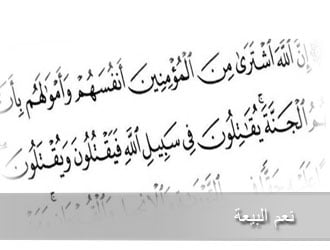 إِنَّ ٱللَّهَ ٱشْتَرَىٰ مِنَ ٱلْمُؤْمِنِينَ أَنفُسَهُمْ وَأَمْوَٰلَهُم بِأَنَّ
ٱلْجَنَّةَ يُقَٰتِلُونَ فِى سَبِيلِ ٱللَّهِ فَيَقْتُلُونَ وَيُقْتَلُونَ
نعم البيعة